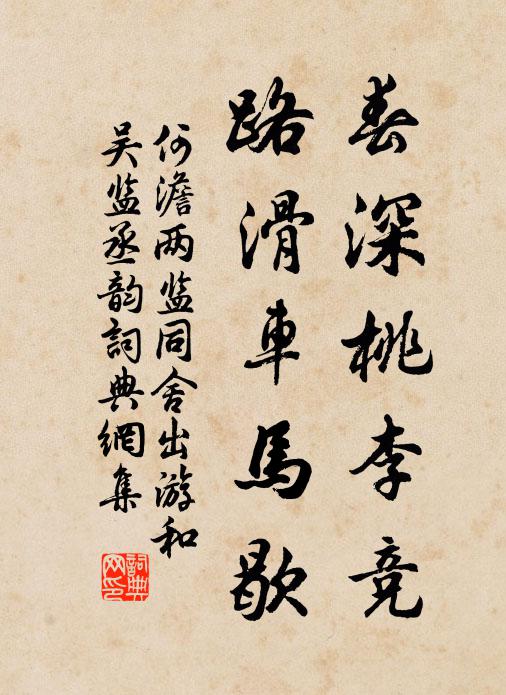 春深桃李竞
路滑車馬歇
何澹两监同舍出游和
吴监丞韵詞典網集
詞典网印